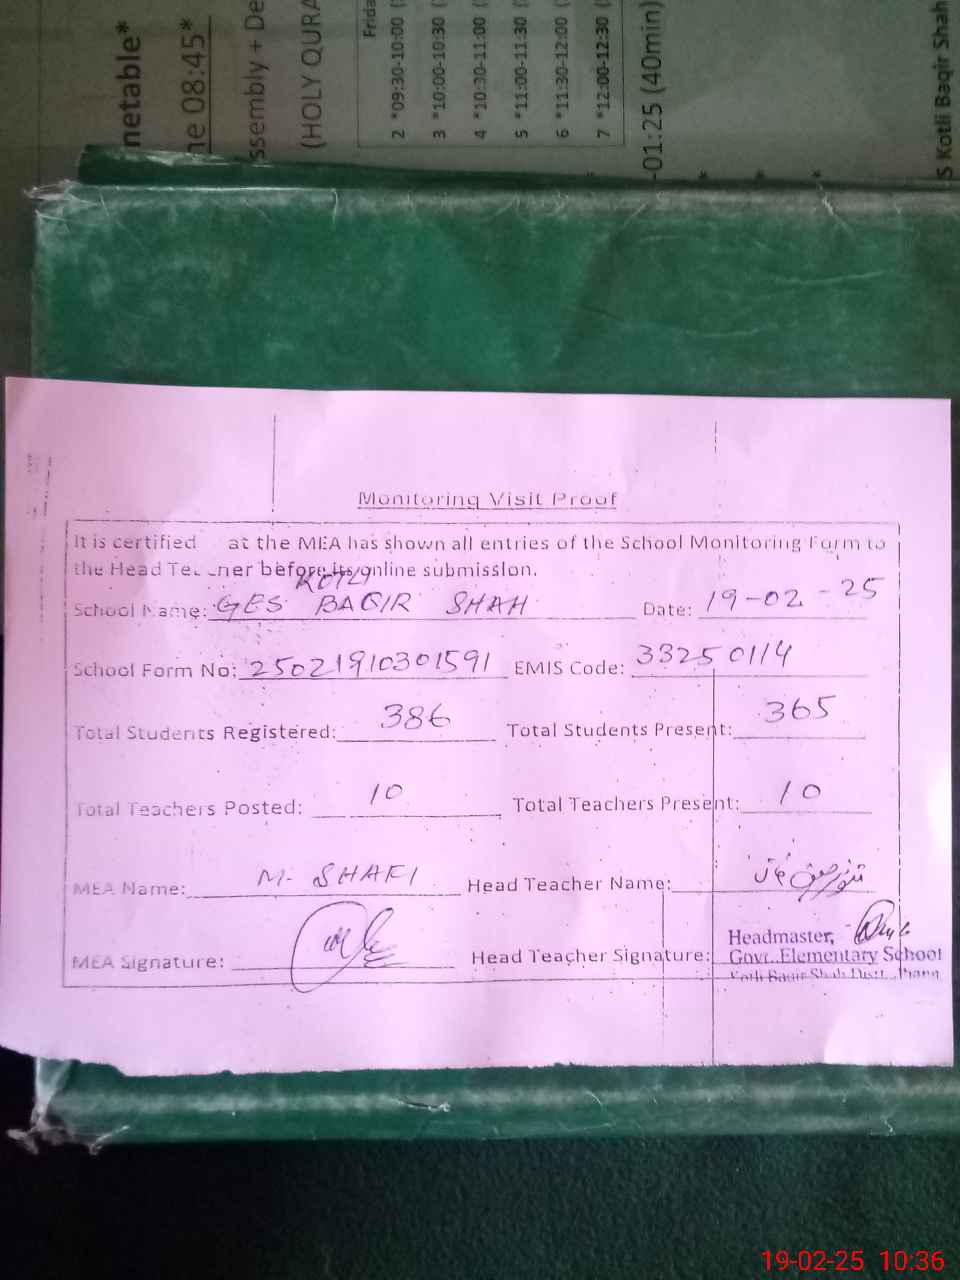 netable*
ne 08:45*
ssembly + De
(HOLY QURA
Frida
2 *09:30-10:00 (
3 *10:00-10:30 (
4 *10:30-11:00 (
5 *11:00-11:30 (
6 *11:30-12:00 (
7 *12:00-12:30 (
-01:25 (40min)
S Kotli Baqir Shah
Monitoring Visit Proof
It is certified at the MEA has shown all entries of the School Monitoring Form to
the Head Te ner before its online submission.
KOTLI
School Name: GES BAQIR SHAH Date: 19-02-25
School Form No: 25021910301591 EMIS Code: 33250114
Total Students Registered: 386 Total Students Present: 365
Total Teachers Posted: 10 Total Teachers Present: 10
MEA Name: M. SHAFI Head Teacher Name:
MEA Signature: Head Teacher Signature:
Headmaster,
Govt. Elementary School
Kotli Baqir Shah Distt. Jhang
19-02-25 10:36